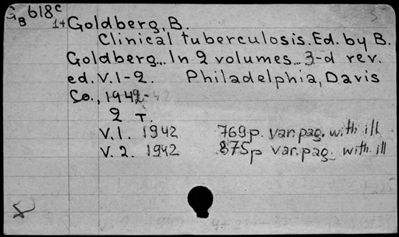 GB 618c
14 Goldberg, B.
Clinical tuberculosis. Ed. by B.
Goldberg... In 2 volumes... 3-d rev.
ed. V. 1-2. Philadelphia, Davis
Co., 1942-42
2 T.
V. 1. 1942 769p. var. pag. with ill
V. 2. 1942 875p var. pag. with ill